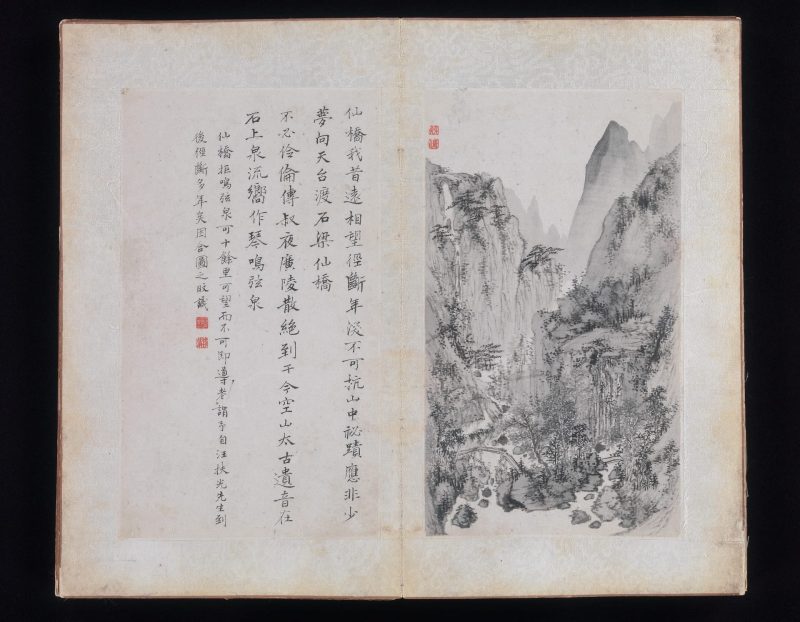 仙橋我昔遠相望徑斷年深不可杭山中祕蹟應非少
夢向天台渡石梁仙橋
不必伶倫傳叔夜廣陵散絕到于今空山太古遺音在
石上泉流嚮作琴鳴弦泉
仙橋距鳴弦泉可十餘里可望而不可即導者謂予自汪扶光先生到
後徑斷多年矣因合圖之旼識